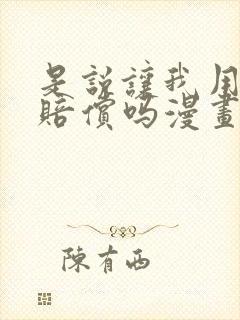 是説讓我用
賠償嗎漫畫
陳有西